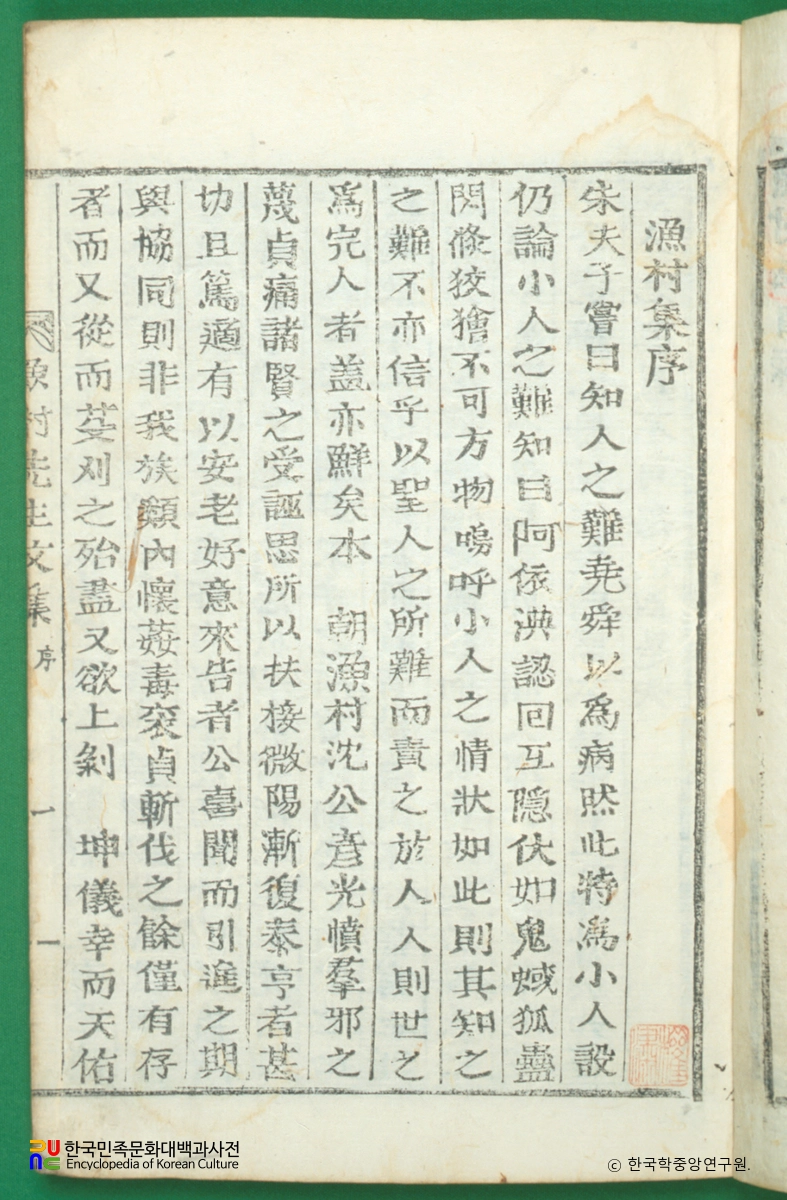 漁村集序
朱夫子嘗曰知人之難堯舜以爲病然此特爲小人設
仍論小人之難知曰阿依淟認回互隱伏如鬼蜮狐蠱
閃倏狡獪不可方物嗚呼小人之情狀如此則其知之
之難不亦信乎以聖人之所難而責之於人人則世之
爲完人者盖亦鮮矣本 朝漁村沈公彦光憤羣邪之
蔑貞痛諸賢之受誣思所以扶接微陽漸復泰亨者甚
切且篤適有以安老好意來告者公喜聞而引進之期
與協同則非我族類內懷姦毒衺貞斬伐之餘僅有存
者而又從而芟刈之殆盡又欲上剝 坤儀幸而天佑
漁村先生文集 序 一 一
한국민족문화대백과사전
Encyclopedia of Korean Culture
© 한국학중앙연구원.